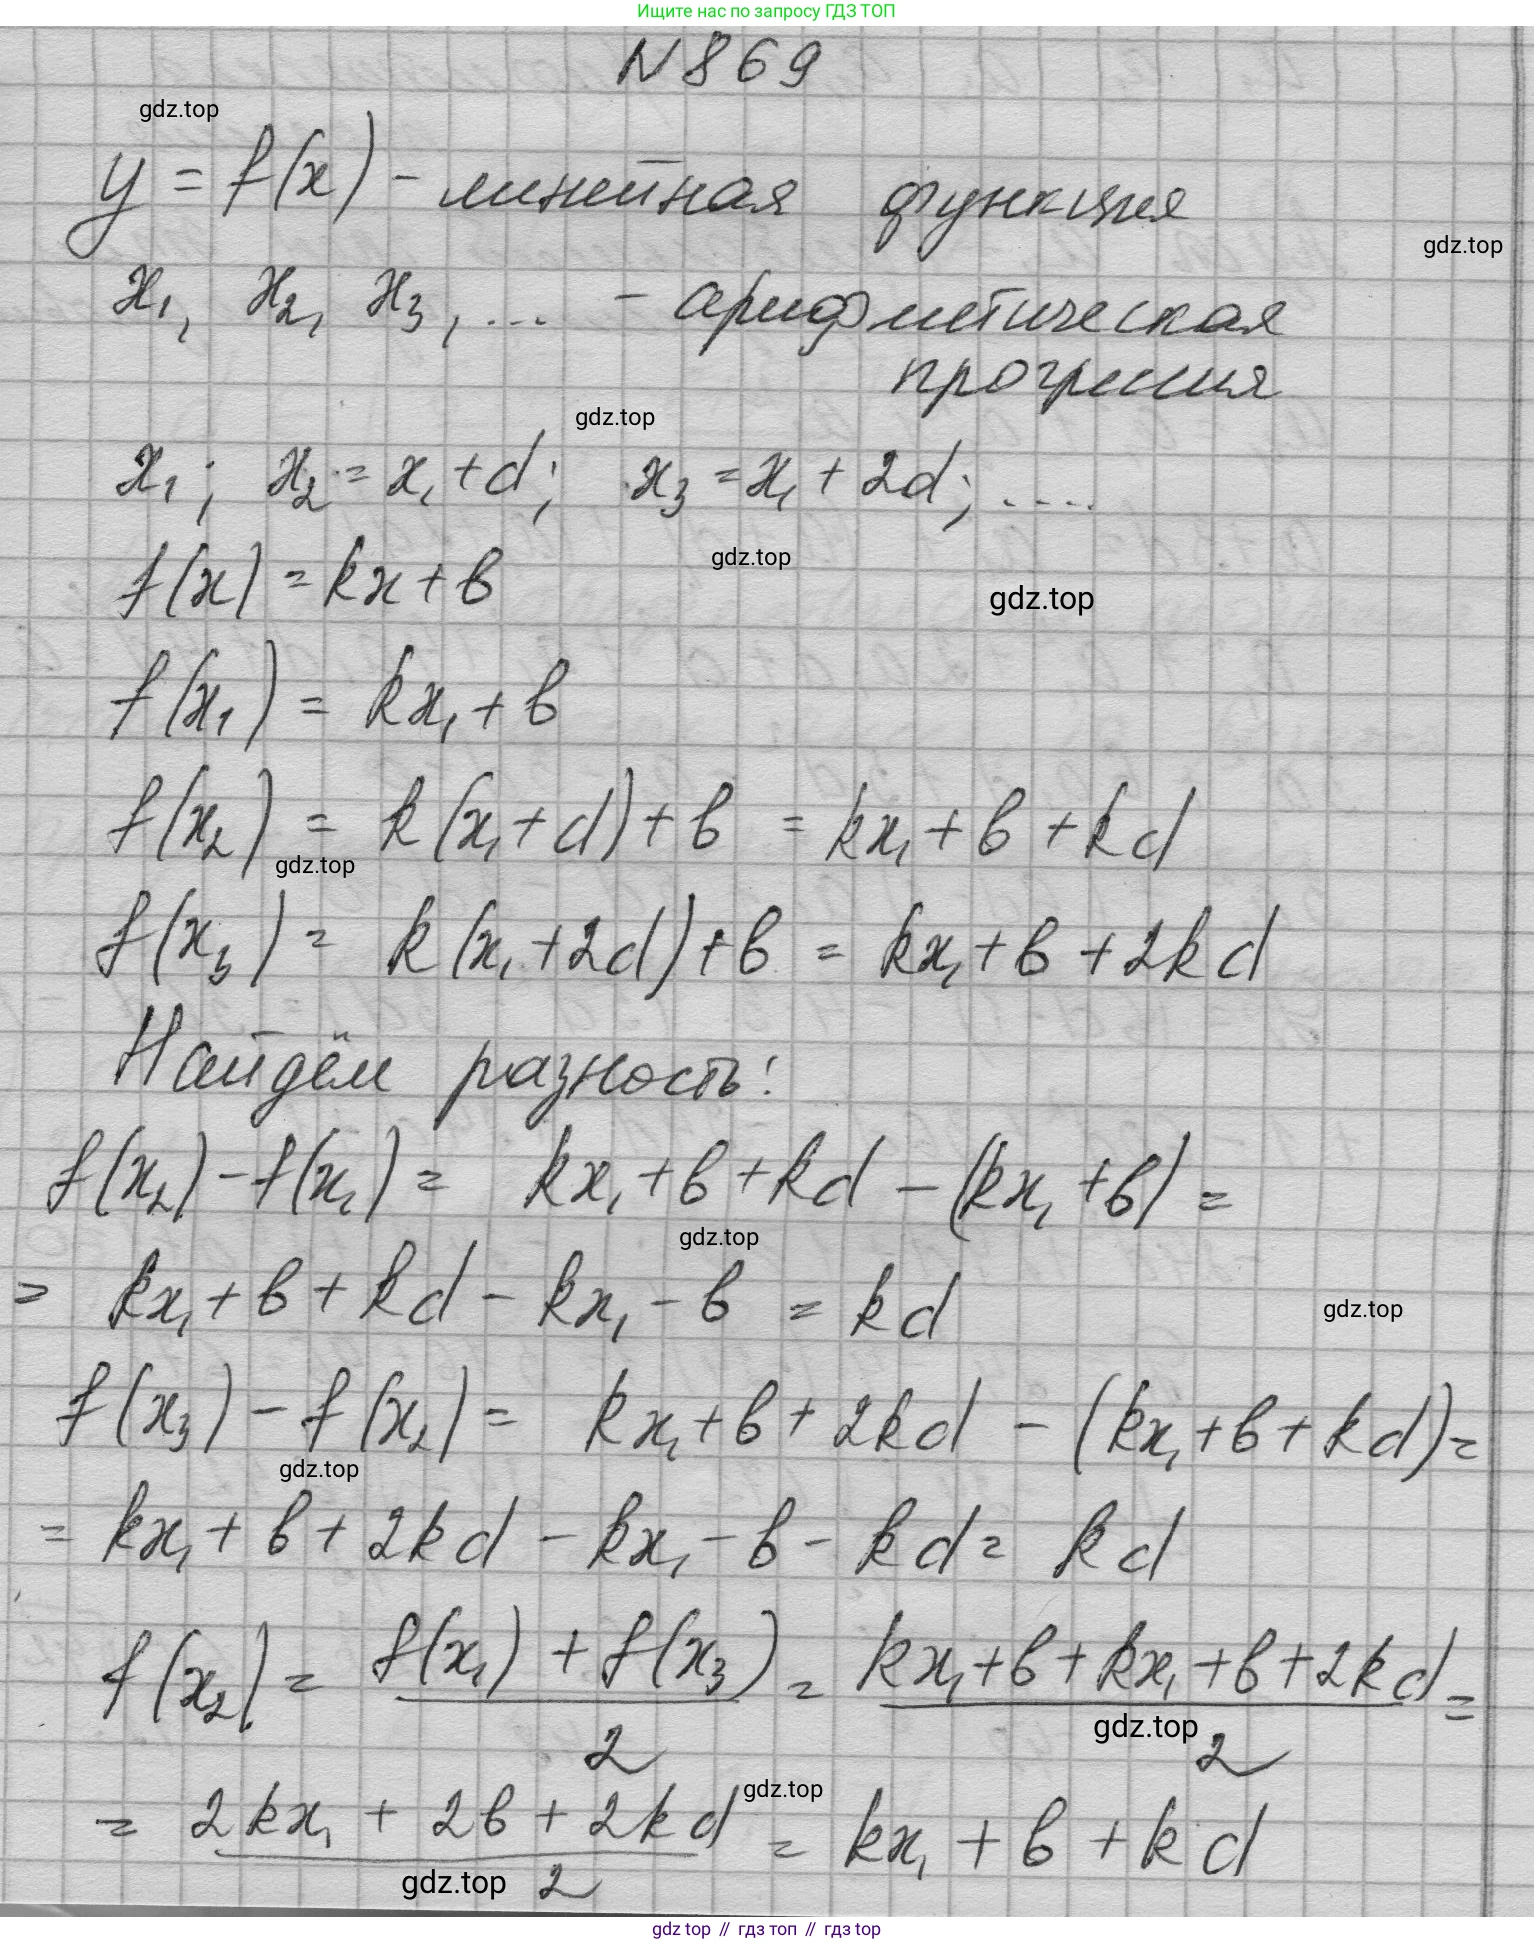 Ищите нас по запросу ГДЗ ТОП
N869
gdz.top
y = f(x) - линейная функция
gdz.top
x₁, x₂, x₃, ... - арифметическая
прогрессия
gdz.top
x₁; x₂ = x₁ + d; x₃ = x₁ + 2d; ....
gdz.top
f(x) = kx + b
gdz.top
f(x₁) = kx₁ + b
f(x₂) = k(x₁ + d) + b = kx₁ + b + kd
gdz.top
f(x₃) = k(x₁ + 2d) + b = kx₁ + b + 2kd
Найдём разность:
f(x₂) - f(x₁) = kx₁ + b + kd - (kx₁ + b) =
gdz.top
= kx₁ + b + kd - kx₁ - b = kd
gdz.top
f(x₃) - f(x₂) = kx₁ + b + 2kd - (kx₁ + b + kd) =
gdz.top
= kx₁ + b + 2kd - kx₁ - b - kd = kd
f(x₂) = (f(x₁) + f(x₃))/2 = (kx₁ + b + kx₁ + b + 2kd)/2 =
gdz.top
gdz.top
= (2kx₁ + 2b + 2kd)/2 = kx₁ + b + kd
gdz.top
gdz top // гдз топ // гдз top